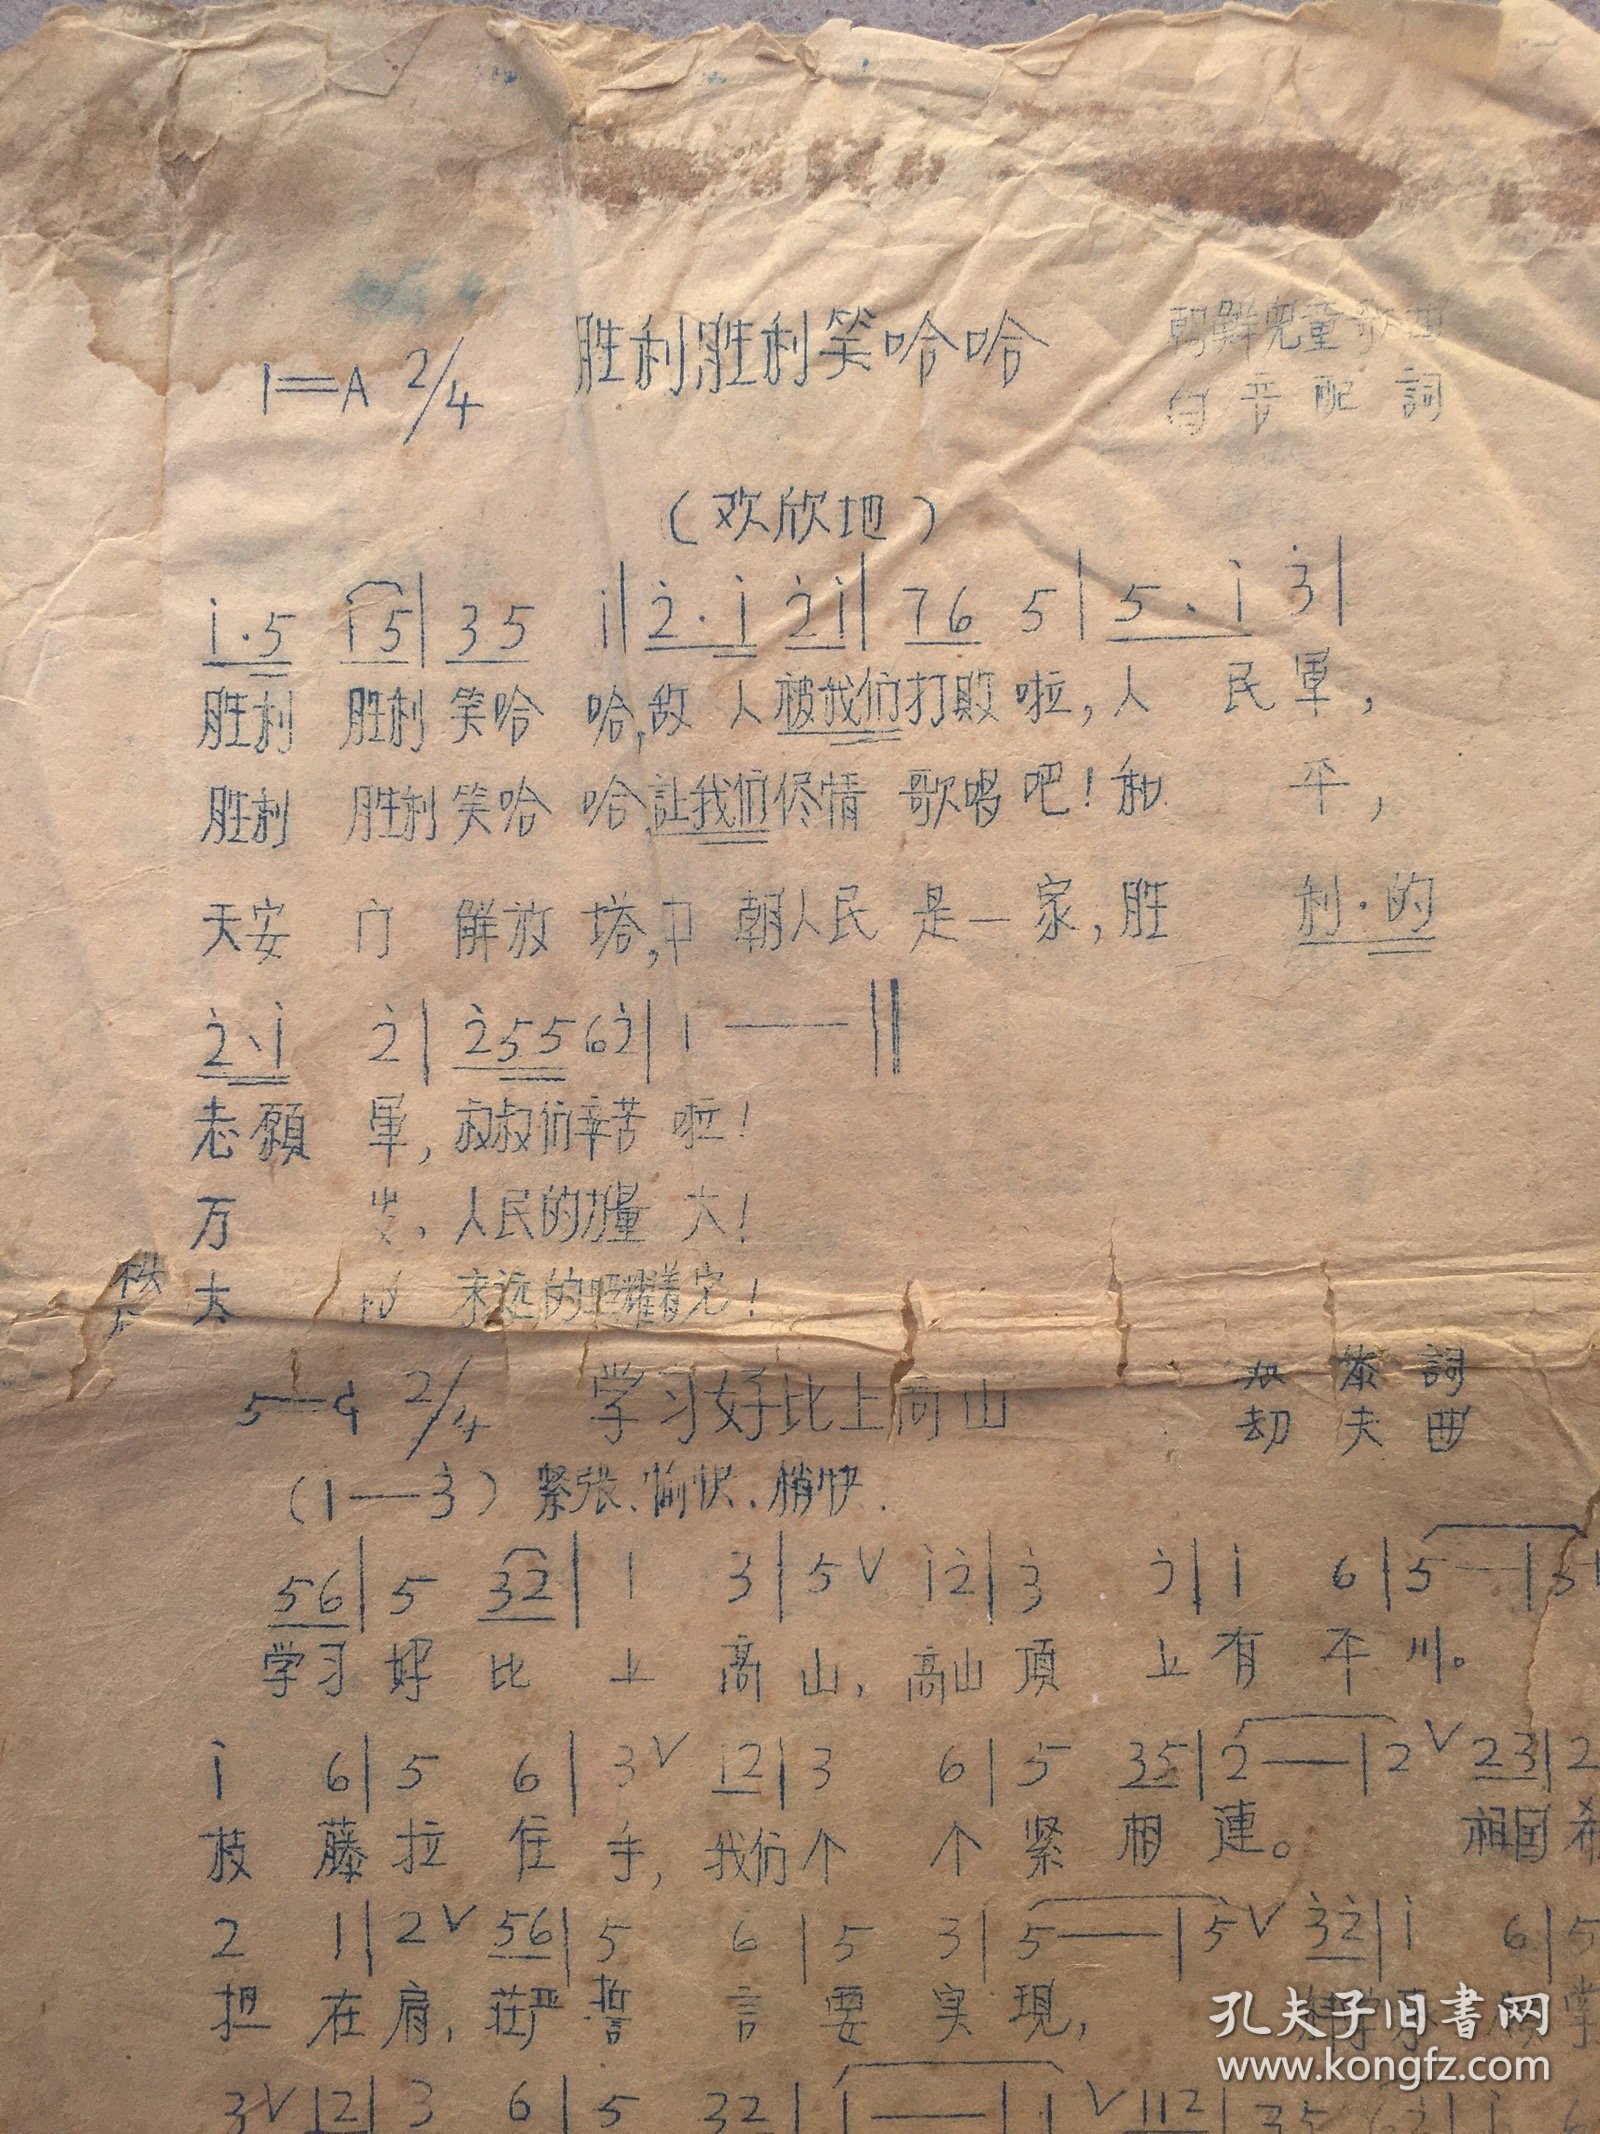 胜利胜利笑哈哈
朝鲜児童歌曲
1=A 2/4
配詞
(欢欣地)
i·5 i5|35 i|2·i 2i|76 5|5·i 3|
胜利 胜利 笑哈 哈,敌 人被我们打敗啦,人 民軍,
胜利 胜利笑哈 哈,讓我们侭情 歌唱吧!和 平,
天安 门 解放 塔,中 朝人民 是一家,胜 利·的
2·i 2|25562|1 —‖
志願 軍,叔叔们辛苦 啦!
万 岁,人民的力量 大!
太 永远的照耀着它!
5=G 2/4 学习好比上高山
詞
劫 夫 曲
(1—3) 紧張、愉快、稍快.
56|5 32|1 3|5V i2|3 2|i 6|5—|5
学习 好 比 上 高 山,高山 頂 上有 平 川。
i 6|5 6|3V i2|3 6|5 35|2—|2V 23|2
枝 藤 拉 住 手,我们 个 个 紧 相 連。 祖国 希
2 1|2V 56|5 6|5 3|5—|5V 32|i 6|5
担 在 肩,莊严 誓 言 要 实 現,
3V 12|3 6|5 32|1—|1V 112|35 62|i 6
孔夫子旧书网
www.kongfz.com